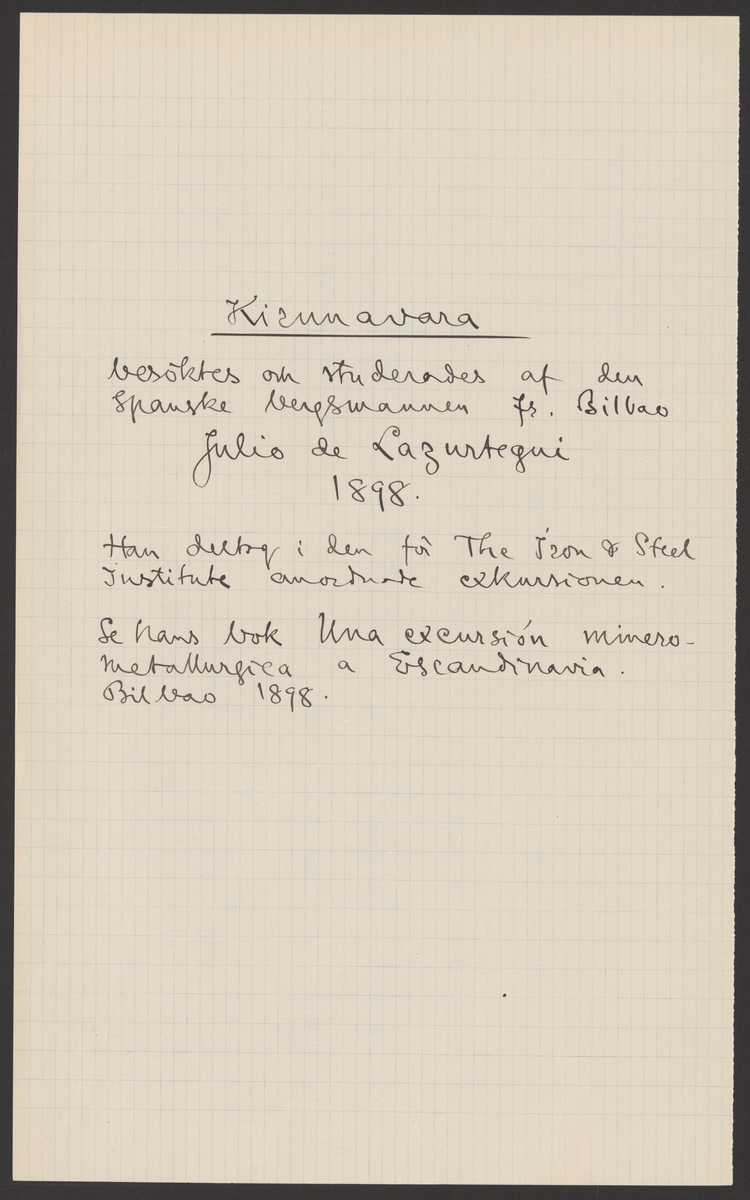 Kirunavara
besöktes och studerades af den
Spanske bergsmannen fr. Bilbao
Julio de Lazurtegui
1898.
Han deltog i den för The Iron & Steel
Institute anordnade exkursionen.
Se hans bok Una excursión minero-
metallurgica a Escandinavia.
Bilbao 1898.